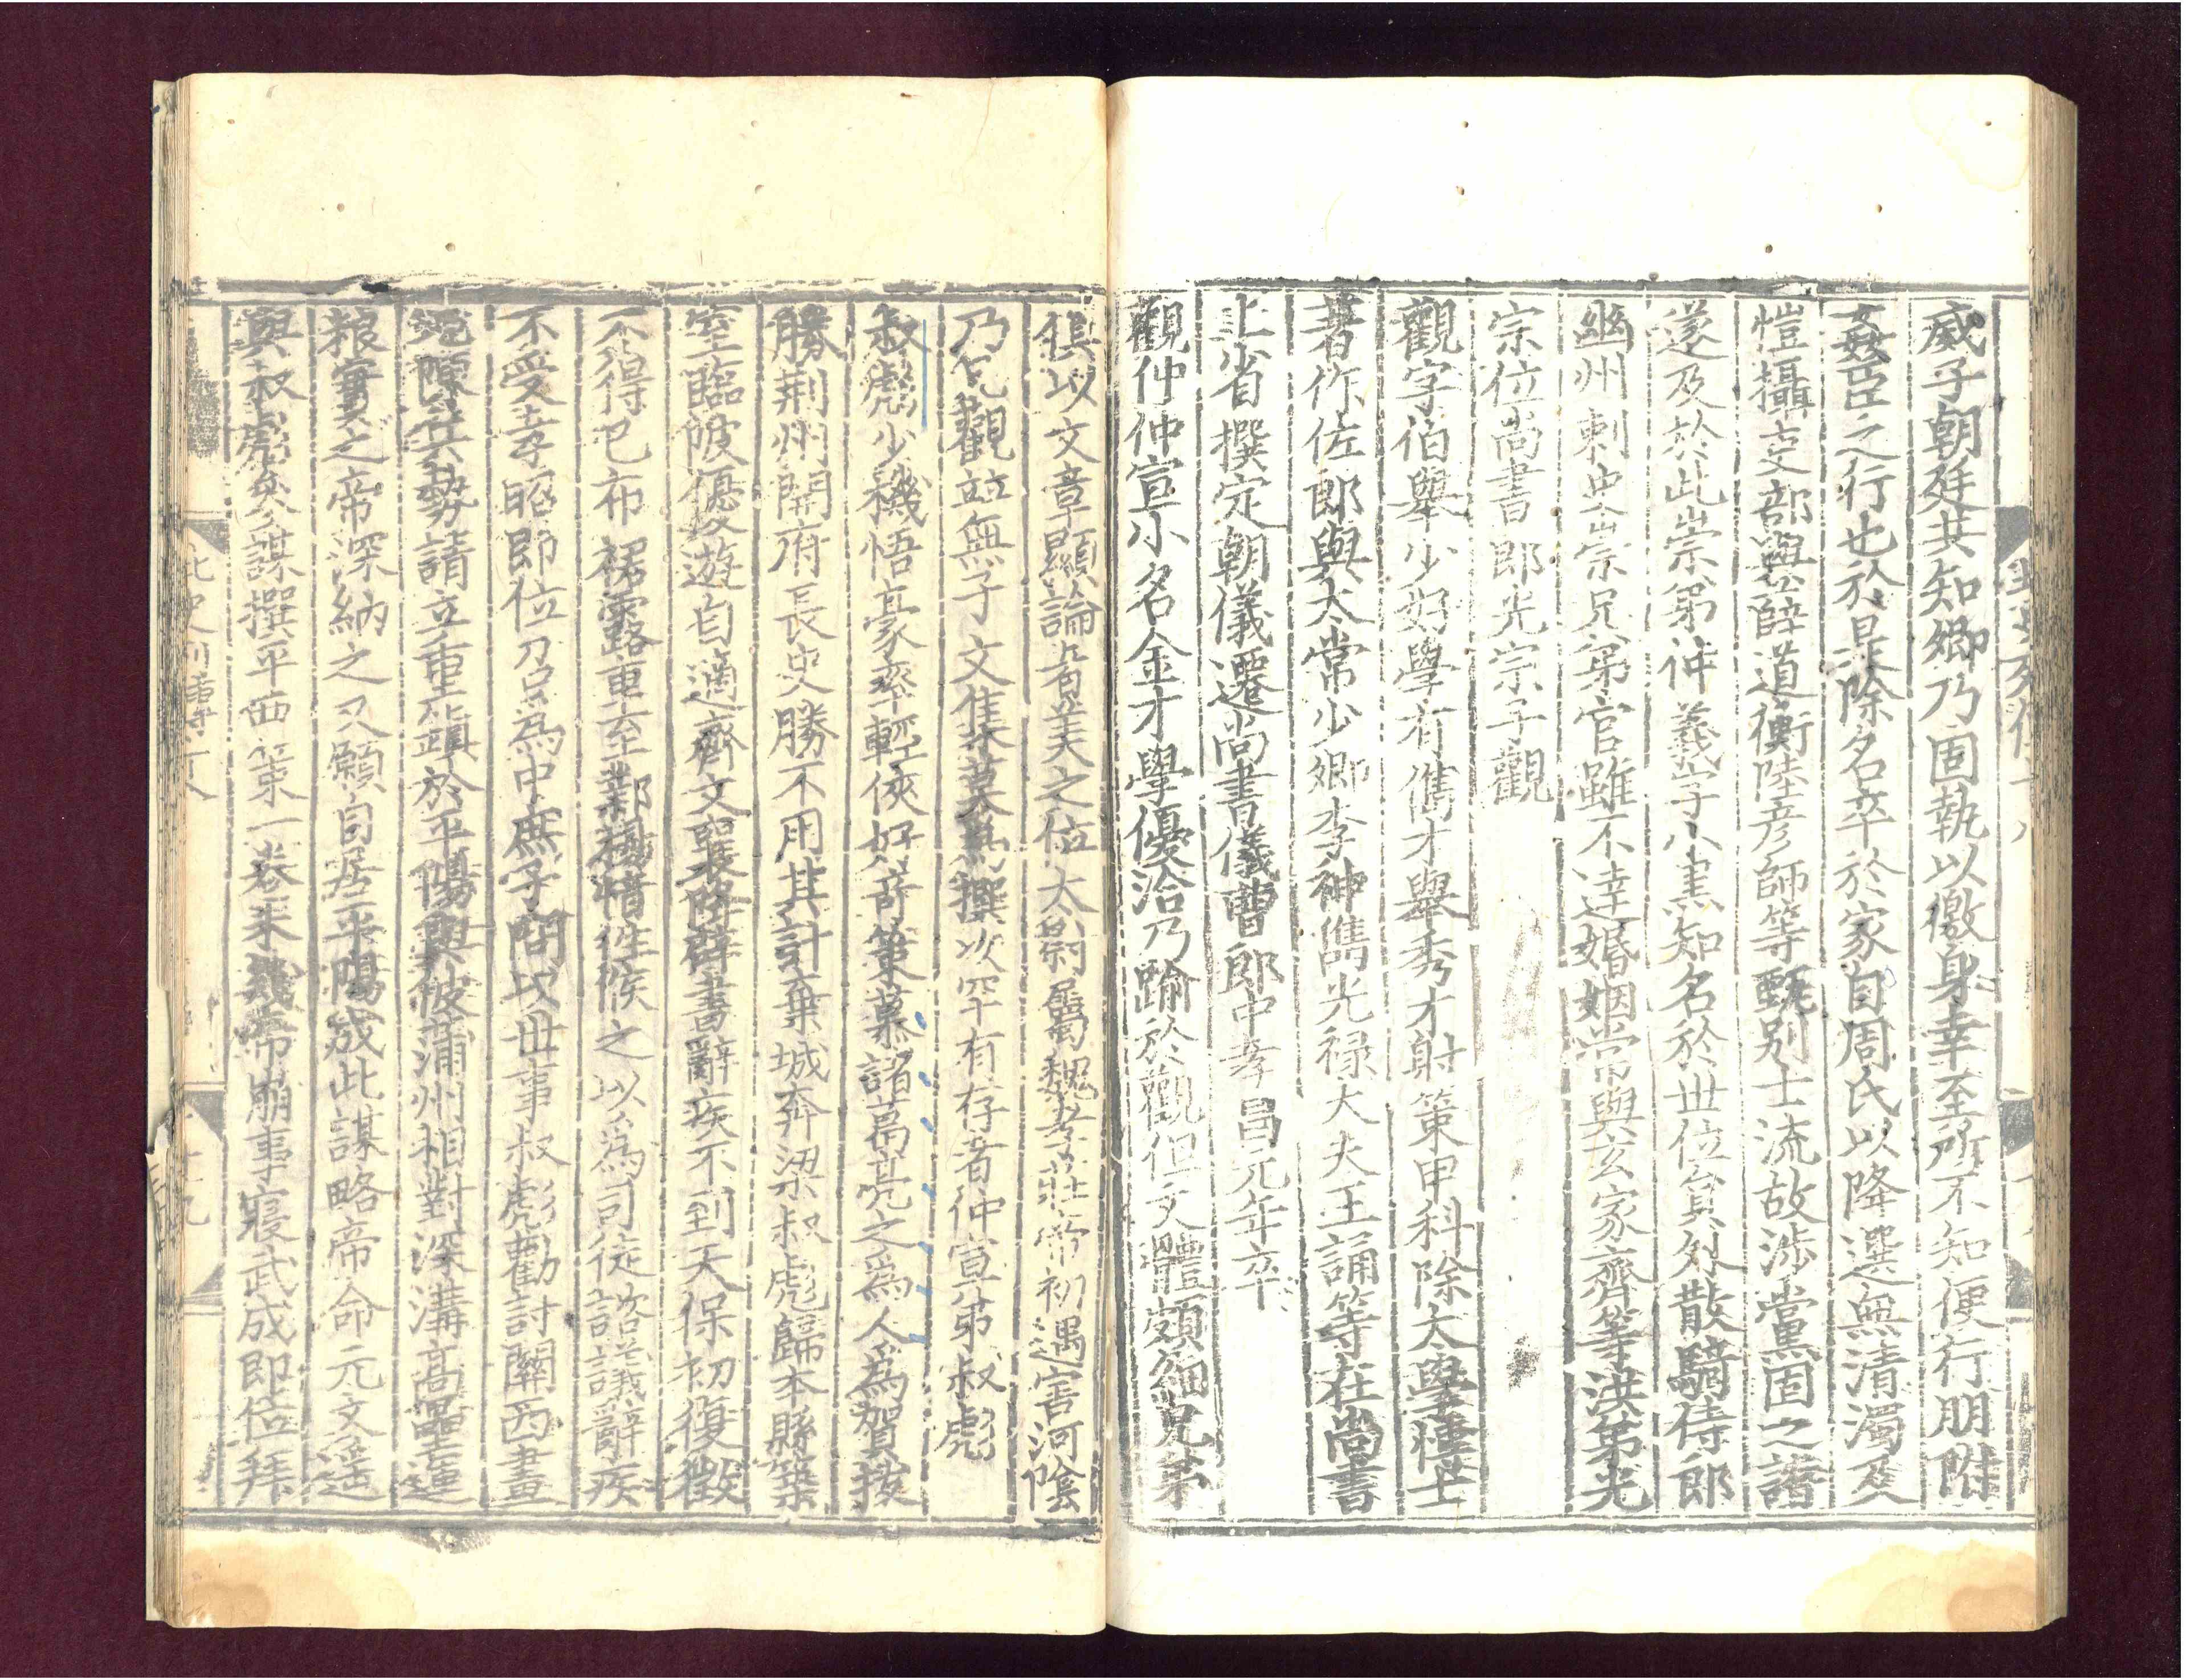 威子朝廷共知卿乃固執以徼身幸至所不知便行朋附
姦臣之行也於是除名卒於家自周氏以降選無清濁及
愷攝吏部與薛道衡陸彦師等甄别士流故涉黨固之譖
遂及於此崇弟仲義字小黒知名於世位負外散騎侍郎
幽州刺史崇兄弟官雖不達婚姻常與玄家齊等洪弟光
宗位尚書郎光宗子觀
觀字伯舉少好學有儁才舉秀才射策甲科除太學博士
著作佐郎與太常少卿李神儁光禄大夫王誦等在尚書
上省撰定朝儀遷尚書儀曹郎中孝昌元年卒
觀仲仲宣小名金才學優洽乃踰於觀但文體頗細兄弟
俱以文章顯論者美之位太尉屬魏孝莊帝初遇害河隂
乃兄觀並無子文集莫爲撰次罕有存者仲宣弟叔彪
叔彪少機悟豪率輕俠好奇策慕諸葛亮之爲人爲賀拔
勝荆州開府長史勝不用其計棄城奔梁叔彪歸本縣築
室臨陂優遊自適齊文襄降辟書辭疾不到天保初復徴
不得已布裙露車至鄴楊愔徃候之以爲司徒諮議辭疾
不受孝昭即位召爲中庶子問以世事叔彪勸討關西畫
地陳兵勢請立重鎮於平陽與彼蒲州相對深溝高壘運
粮實之帝深納之又願自居平陽成此謀略帝命元文遥
與叔彪叅謀撰平西策一卷未幾帝崩事寝武成即位拜
北史列傳十八
十九